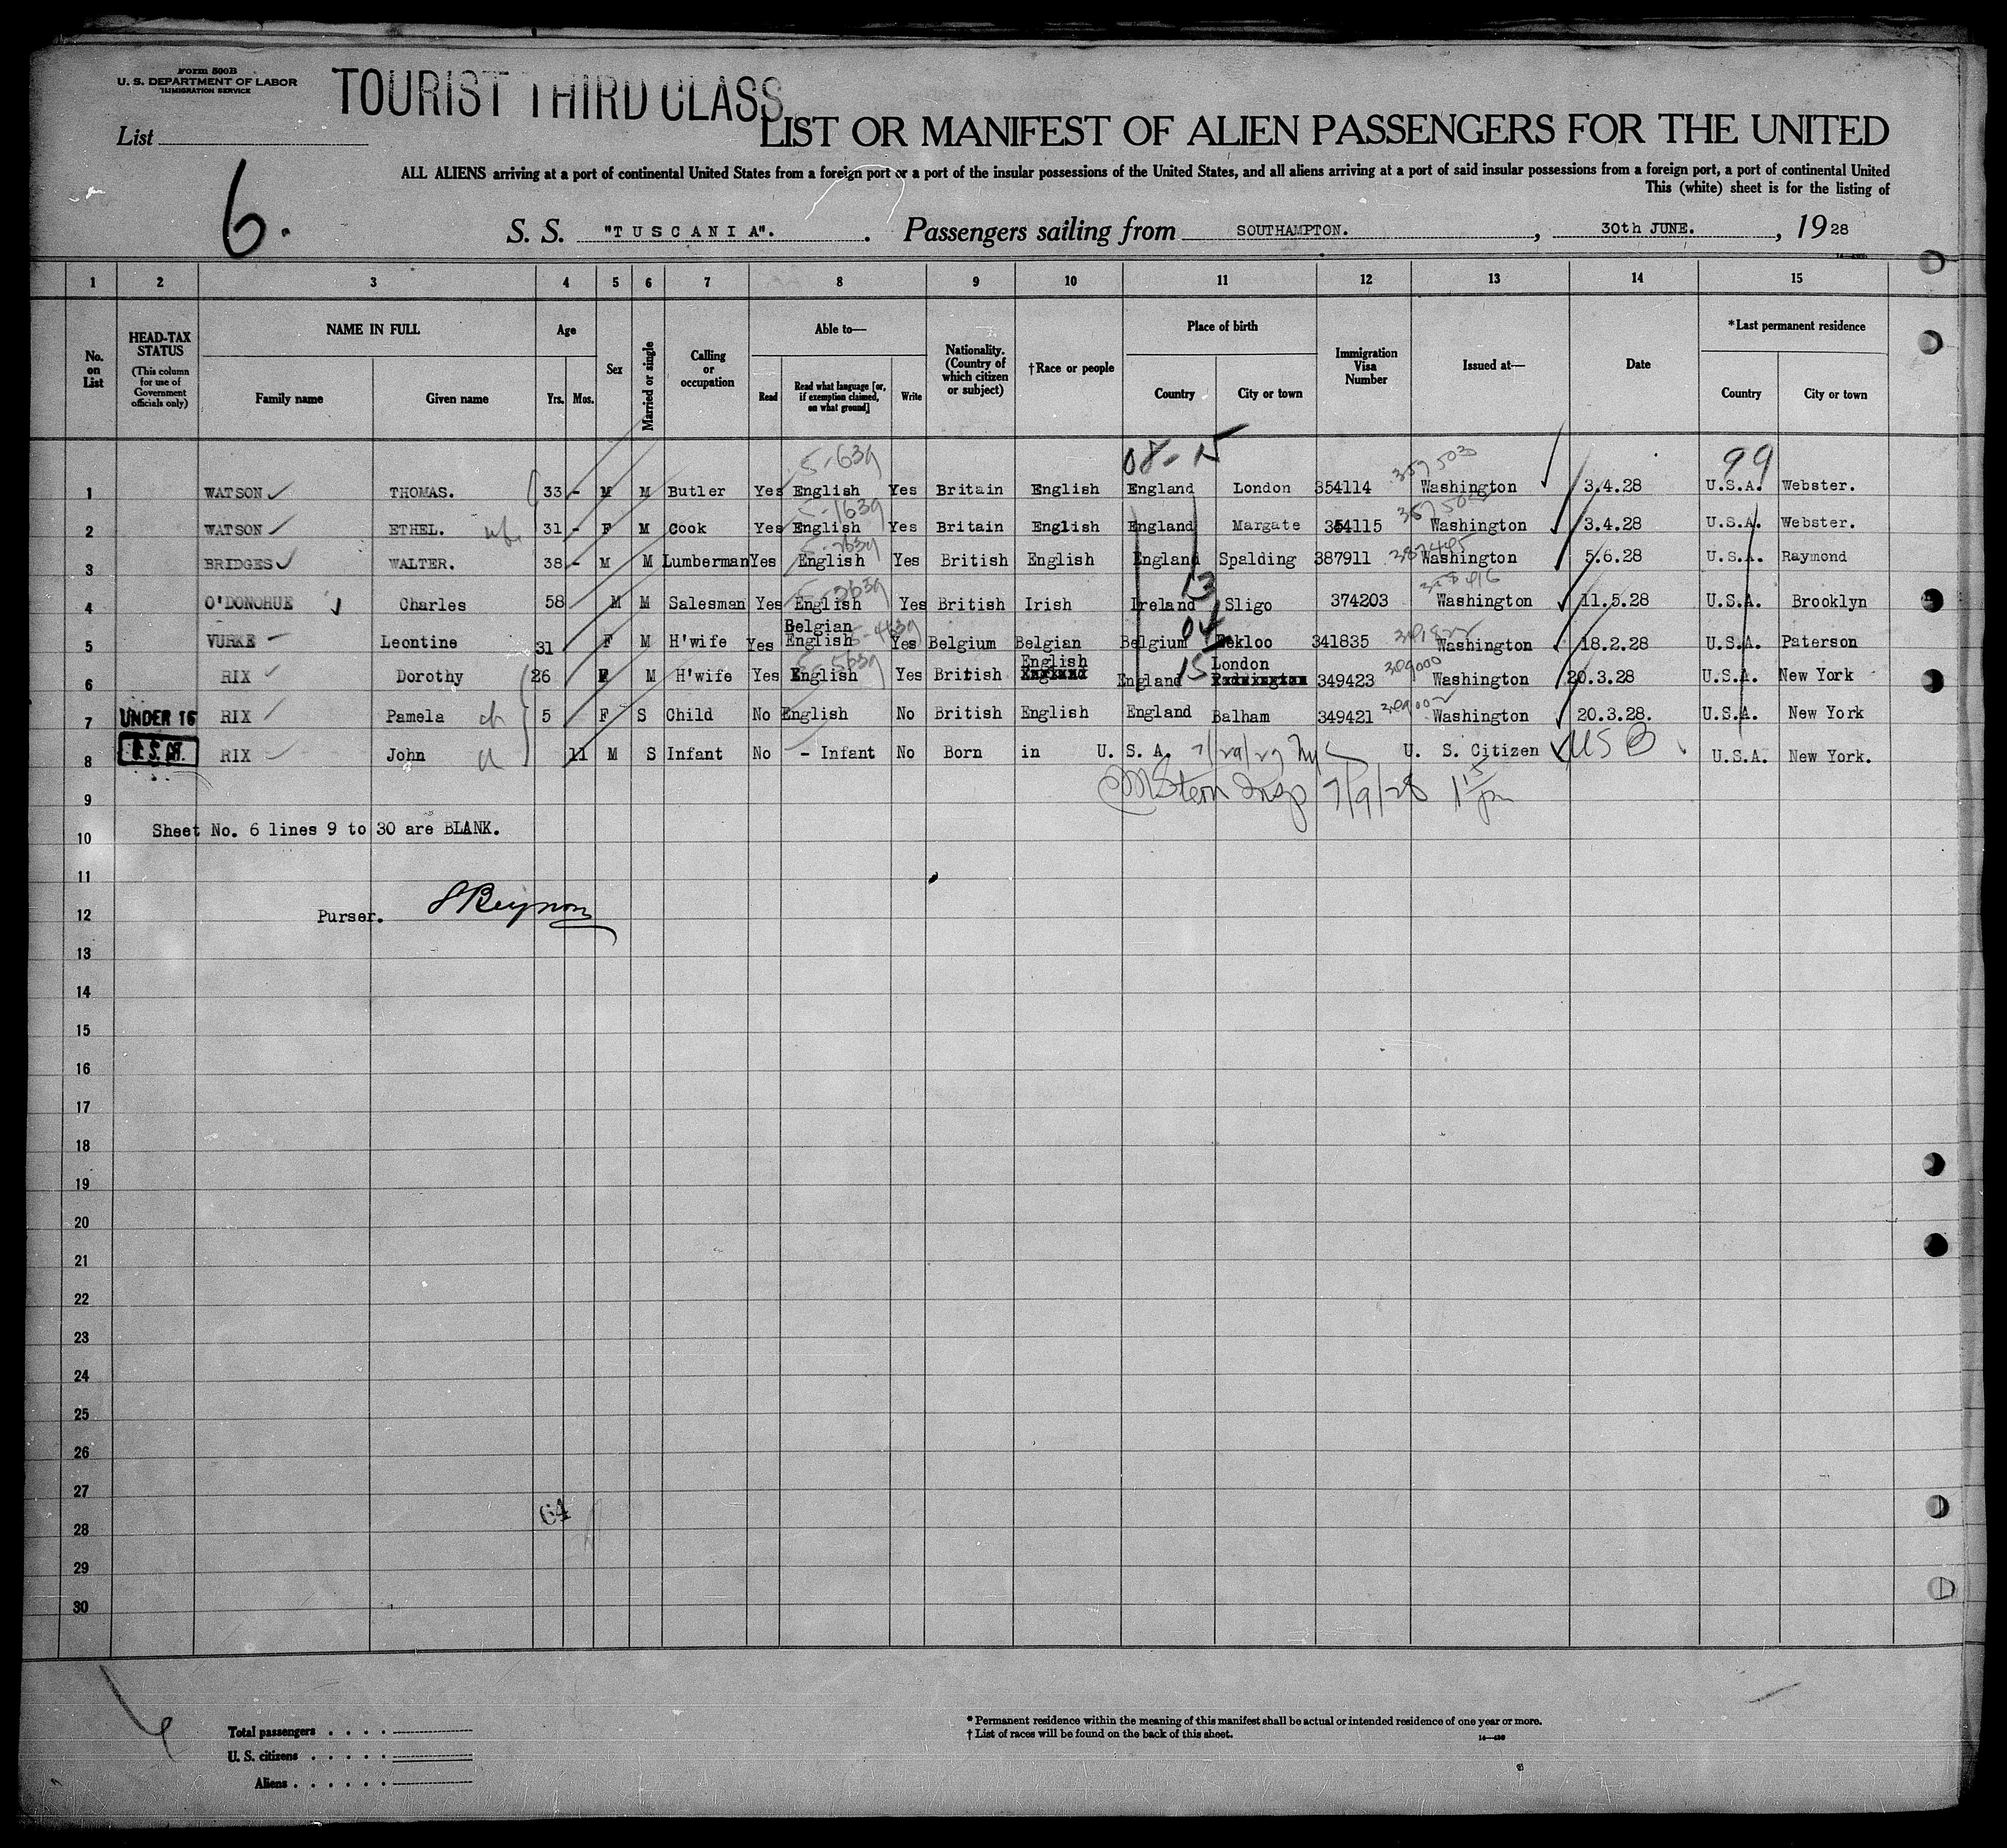 Form 500B
U. S. DEPARTMENT OF LABOR
IMMIGRATION SERVICE
TOURIST THIRD CLASS
List
LIST OR MANIFEST OF ALIEN PASSENGERS FOR THE UNITED
ALL ALIENS arriving at a port of continental United States from a foreign port or a port of the insular possessions of the United States, and all aliens arriving at a port of said insular possessions from a foreign port, a port of continental United
This (white) sheet is for the listing of
6.
S. S. "TUSCANIA". Passengers sailing from SOUTHAMPTON. , 30th JUNE. , 1928
1 2 3 4 5 6 7 8 9 10 11 12 13 14 15
No. on List
HEAD-TAX STATUS
(This column for use of Government officials only)
NAME IN FULL
Family name Given name
Age
Yrs. Mos.
Sex
Married or single
Calling or occupation
Able to—
Read Read what language [or, if exemption claimed, on what ground] Write
Nationality. (Country of which citizen or subject)
†Race or people
Place of birth
Country City or town
Immigration Visa Number
Issued at—
Date
*Last permanent residence
Country City or town
5-639 08-15 357503 99
1 WATSON THOMAS. 33 - M M Butler Yes English Yes Britain English England London 354114 Washington 3.4.28 U.S.A. Webster.
5-1639
2 WATSON ETHEL. wfe 31 - F M Cook Yes English Yes Britain English England Margate 354115 Washington 3.4.28 U.S.A. Webster.
5-2639
3 BRIDGES WALTER. 38 - M M Lumberman Yes English Yes British English England Spalding 387911 Washington 5.6.28 U.S.A. Raymond
5-3639 13
4 O'DONOHUE Charles 58 M M Salesman Yes English Yes British Irish Ireland Sligo 374203 Washington 11.5.28 U.S.A. Brooklyn
Belgian 5-4639 04
5 VURKE Leontine 31 F M H'wife Yes English Yes Belgium Belgian Belgium Eekloo 341835 Washington 18.2.28 U.S.A. Paterson
5-5639 English London 309000
6 RIX Dorothy 26 F M H'wife Yes English Yes British England England 15 349423 Washington 20.3.28 U.S.A. New York
7 UNDER 16 RIX Pamela ch 5 F S Child No English No British English England Balham 349421 309002 Washington 20.3.28. U.S.A. New York
8 RIX John 11 M S Infant No - Infant No Born in U. S. A. 7/29/27 NY U. S. Citizen USB U.S.A. New York.
9 Stern Insp 7/9/28
Sheet No. 6 lines 9 to 30 are BLANK.
10
11
12 Purser.
13
14
15
16
17
18
19
20
21
22
23
24
25
26
27
64
28
29
30
Total passengers
U. S. citizens
Aliens
* Permanent residence within the meaning of this manifest shall be actual or intended residence of one year or more.
† List of races will be found on the back of this sheet.